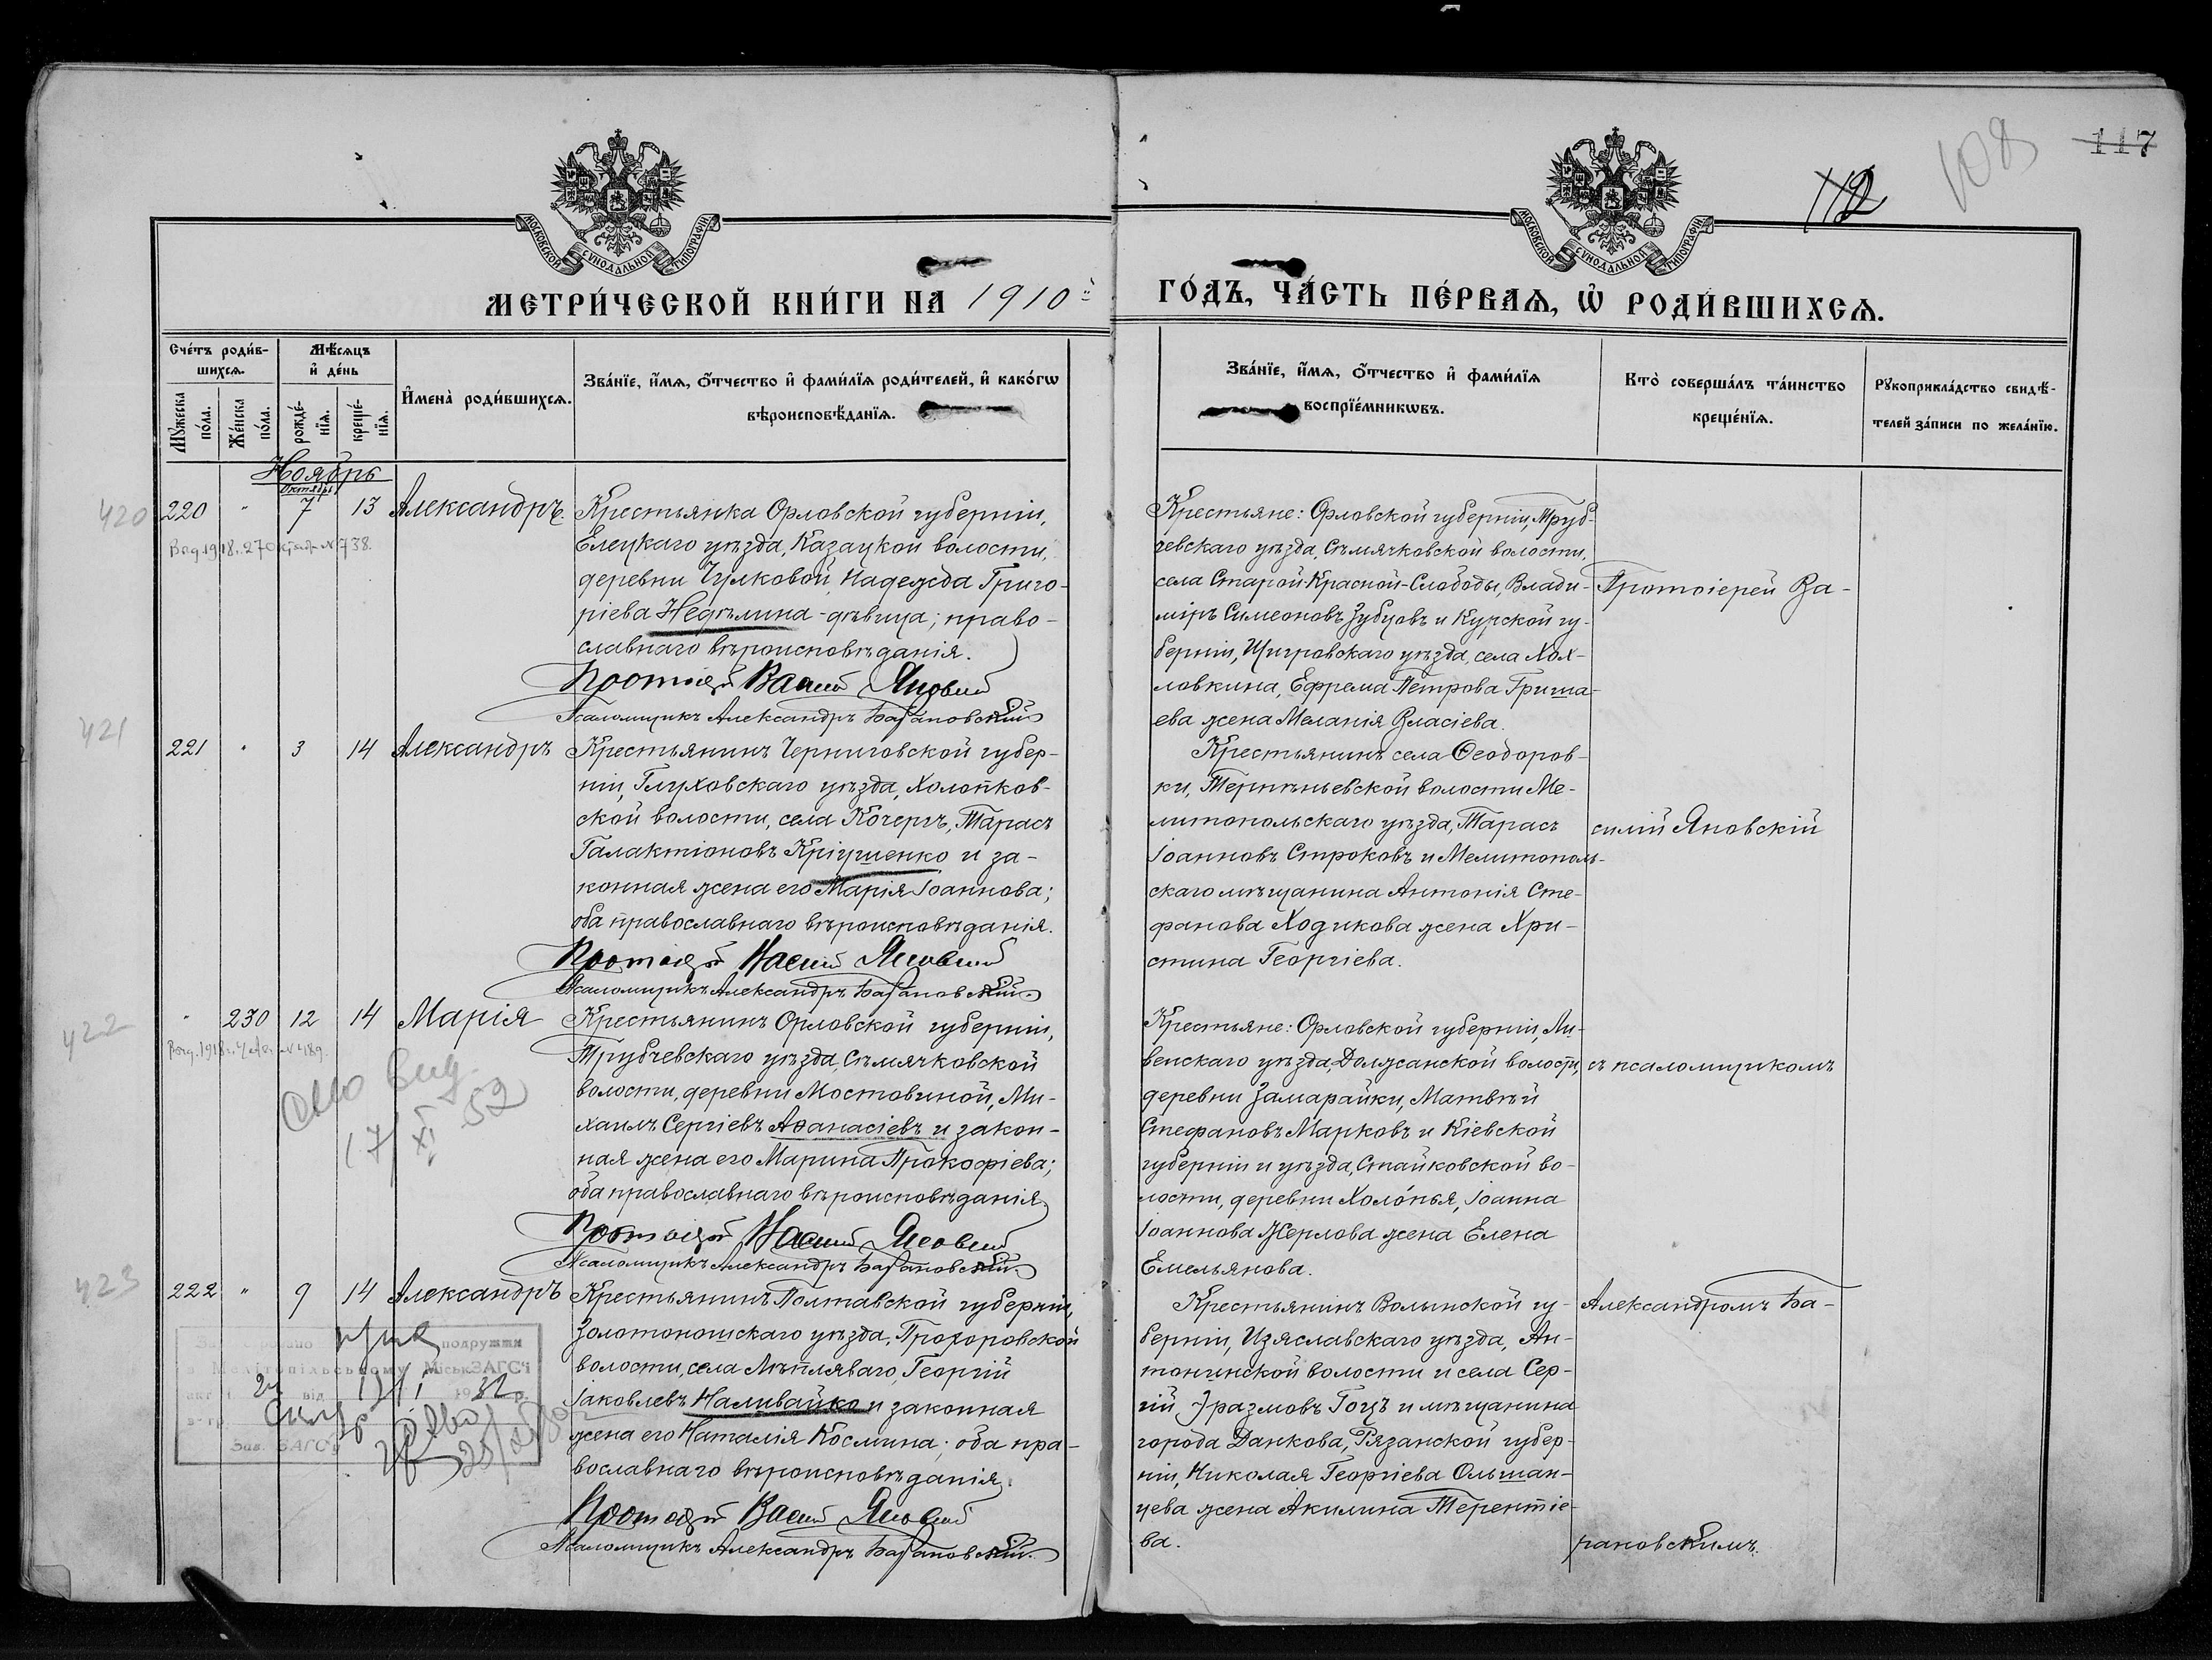 108
117
112
МОСКОВСКОЙ СУНОДАЛЬНОЙ ТИПОГРАФІИ
МОСКОВСКОЙ СУНОДАЛЬНОЙ ТИПОГРАФІИ
МЕТРИ́ЧЕСКОЙ КНИ́ГИ НА 1910й
ГО́ДЪ, ЧА́СТЬ ПЕ́РВАѦ, Ѡ҆ РОДИ́ВШИХСѦ.
Сче́тъ роди́в-
шихсѧ.
Мѣ́сѧцъ
и҆ де́нь
Мꙋ́жеска по́ла.
Же́нска по́ла.
рожде́-
нїѧ.
креще́-
нїѧ.
И҆мена̀ роди́вшихсѧ.
Зва́нїе, и҆́мѧ, ѻ҆́тчество и҆ фами́лїѧ роди́телей, и҆ како́гѡ
вѣроисповѣ́данїѧ.
Зва́нїе, и҆́мѧ, ѻ҆́тчество и҆ фами́лїѧ
воспрїе́мникѡвъ.
Кто̀ соверша́лъ та́инство
креще́нїѧ.
Рꙋкоприкла́дство свидѣ́-
телей за́писи по жела́нїю.
Ноябрь
Октябрь
420
220 " 7 13 Александръ.
Крестьянка Орловской губерніи,
Елецкаго уѣзда, Казацкой волости,
деревни Чулковой, Надежда Григо-
ріева Недѣлина - дѣвица; право-
славнаго вѣроисповѣданія.
Протоіерей Василій Яновскій
Псаломщикъ Александръ Барановскій
Крестьяне: Орловской губерніи, Труб-
чевскаго уѣзда, Сѣмячковской волости,
села Старой-Красной-Слободы, Влади-
міръ Симеоновъ Зубцовъ и Курской гу-
берніи, Щигровскаго уѣзда, села Хох-
ловкина, Ефрема Петрова Гриша-
ева жена Меланія Власіева.
Протоіерей Ва-
421
221 " 3 14 Александръ
Крестьянинъ Черниговской губер-
ніи, Глуховскаго уѣзда, Холопков-
ской волости, села Кочергъ, Тарасъ
Галактіоновъ Кріушенко и за-
конная жена его Марія Іоаннова;
оба православнаго вѣроисповѣданія.
Протоіерей Василій Яновскій
Псаломщикъ Александръ Барановскій
Крестьянинъ села Ѳеодоров-
ки, Терпѣньевской волости Ме-
литопольскаго уѣзда, Тарасъ
Іоанновъ Строковъ и Мелитополь-
скаго мѣщанина Антонія Сте-
фанова Ходикова жена Хри-
стина Георгіева.
силій Яновскій
422
" 230 12 14 Марія
Крестьянинъ Орловской губерніи,
Трубчевскаго уѣзда, Сѣмячковской
волости, деревни Мостовиной, Ми-
хаилъ Сергіевъ Аѳанасіевъ и закон-
ная жена его Марина Прокофіева;
оба православнаго вѣроисповѣданія.
Протоіерей Василій Яновскій
Псаломщикъ Александръ Барановскій
Крестьяне: Орловской губерніи, Ли-
венскаго уѣзда, Должанской волости,
деревни Замарайки, Матвѣй
Стефановъ Марковъ и Кіевской
губерніи и уѣзда, Стайковской во-
лости, деревни Холо́пья, Іоанна
Іоаннова Жерлова жена Елена
Емельянова.
съ псаломщикомъ
423
222 " 9 14 Александръ
Крестьянинъ Полтавской губерніи,
Золотоношскаго уѣзда, Прохоровской
волости, села Мѣпляваго, Георгій
Іаковлевъ Наливайко и законная
жена его Наталія Космина; оба пра-
вославнаго вѣроисповѣданія.
Протоіерей Василій Яновскій
Псаломщикъ Александръ Барановскій
Крестьянинъ Волынской гу-
берніи, Изяславскаго уѣзда, Ан-
тонинской волости и села Сер-
гій Эразмовъ Гоцъ и мѣщанина
города Данкова, Рязанской губер-
ніи, Николая Георгіева Ольшан-
цева жена Акилина Терентіе-
ва.
Александромъ Ба-
рановскимъ.